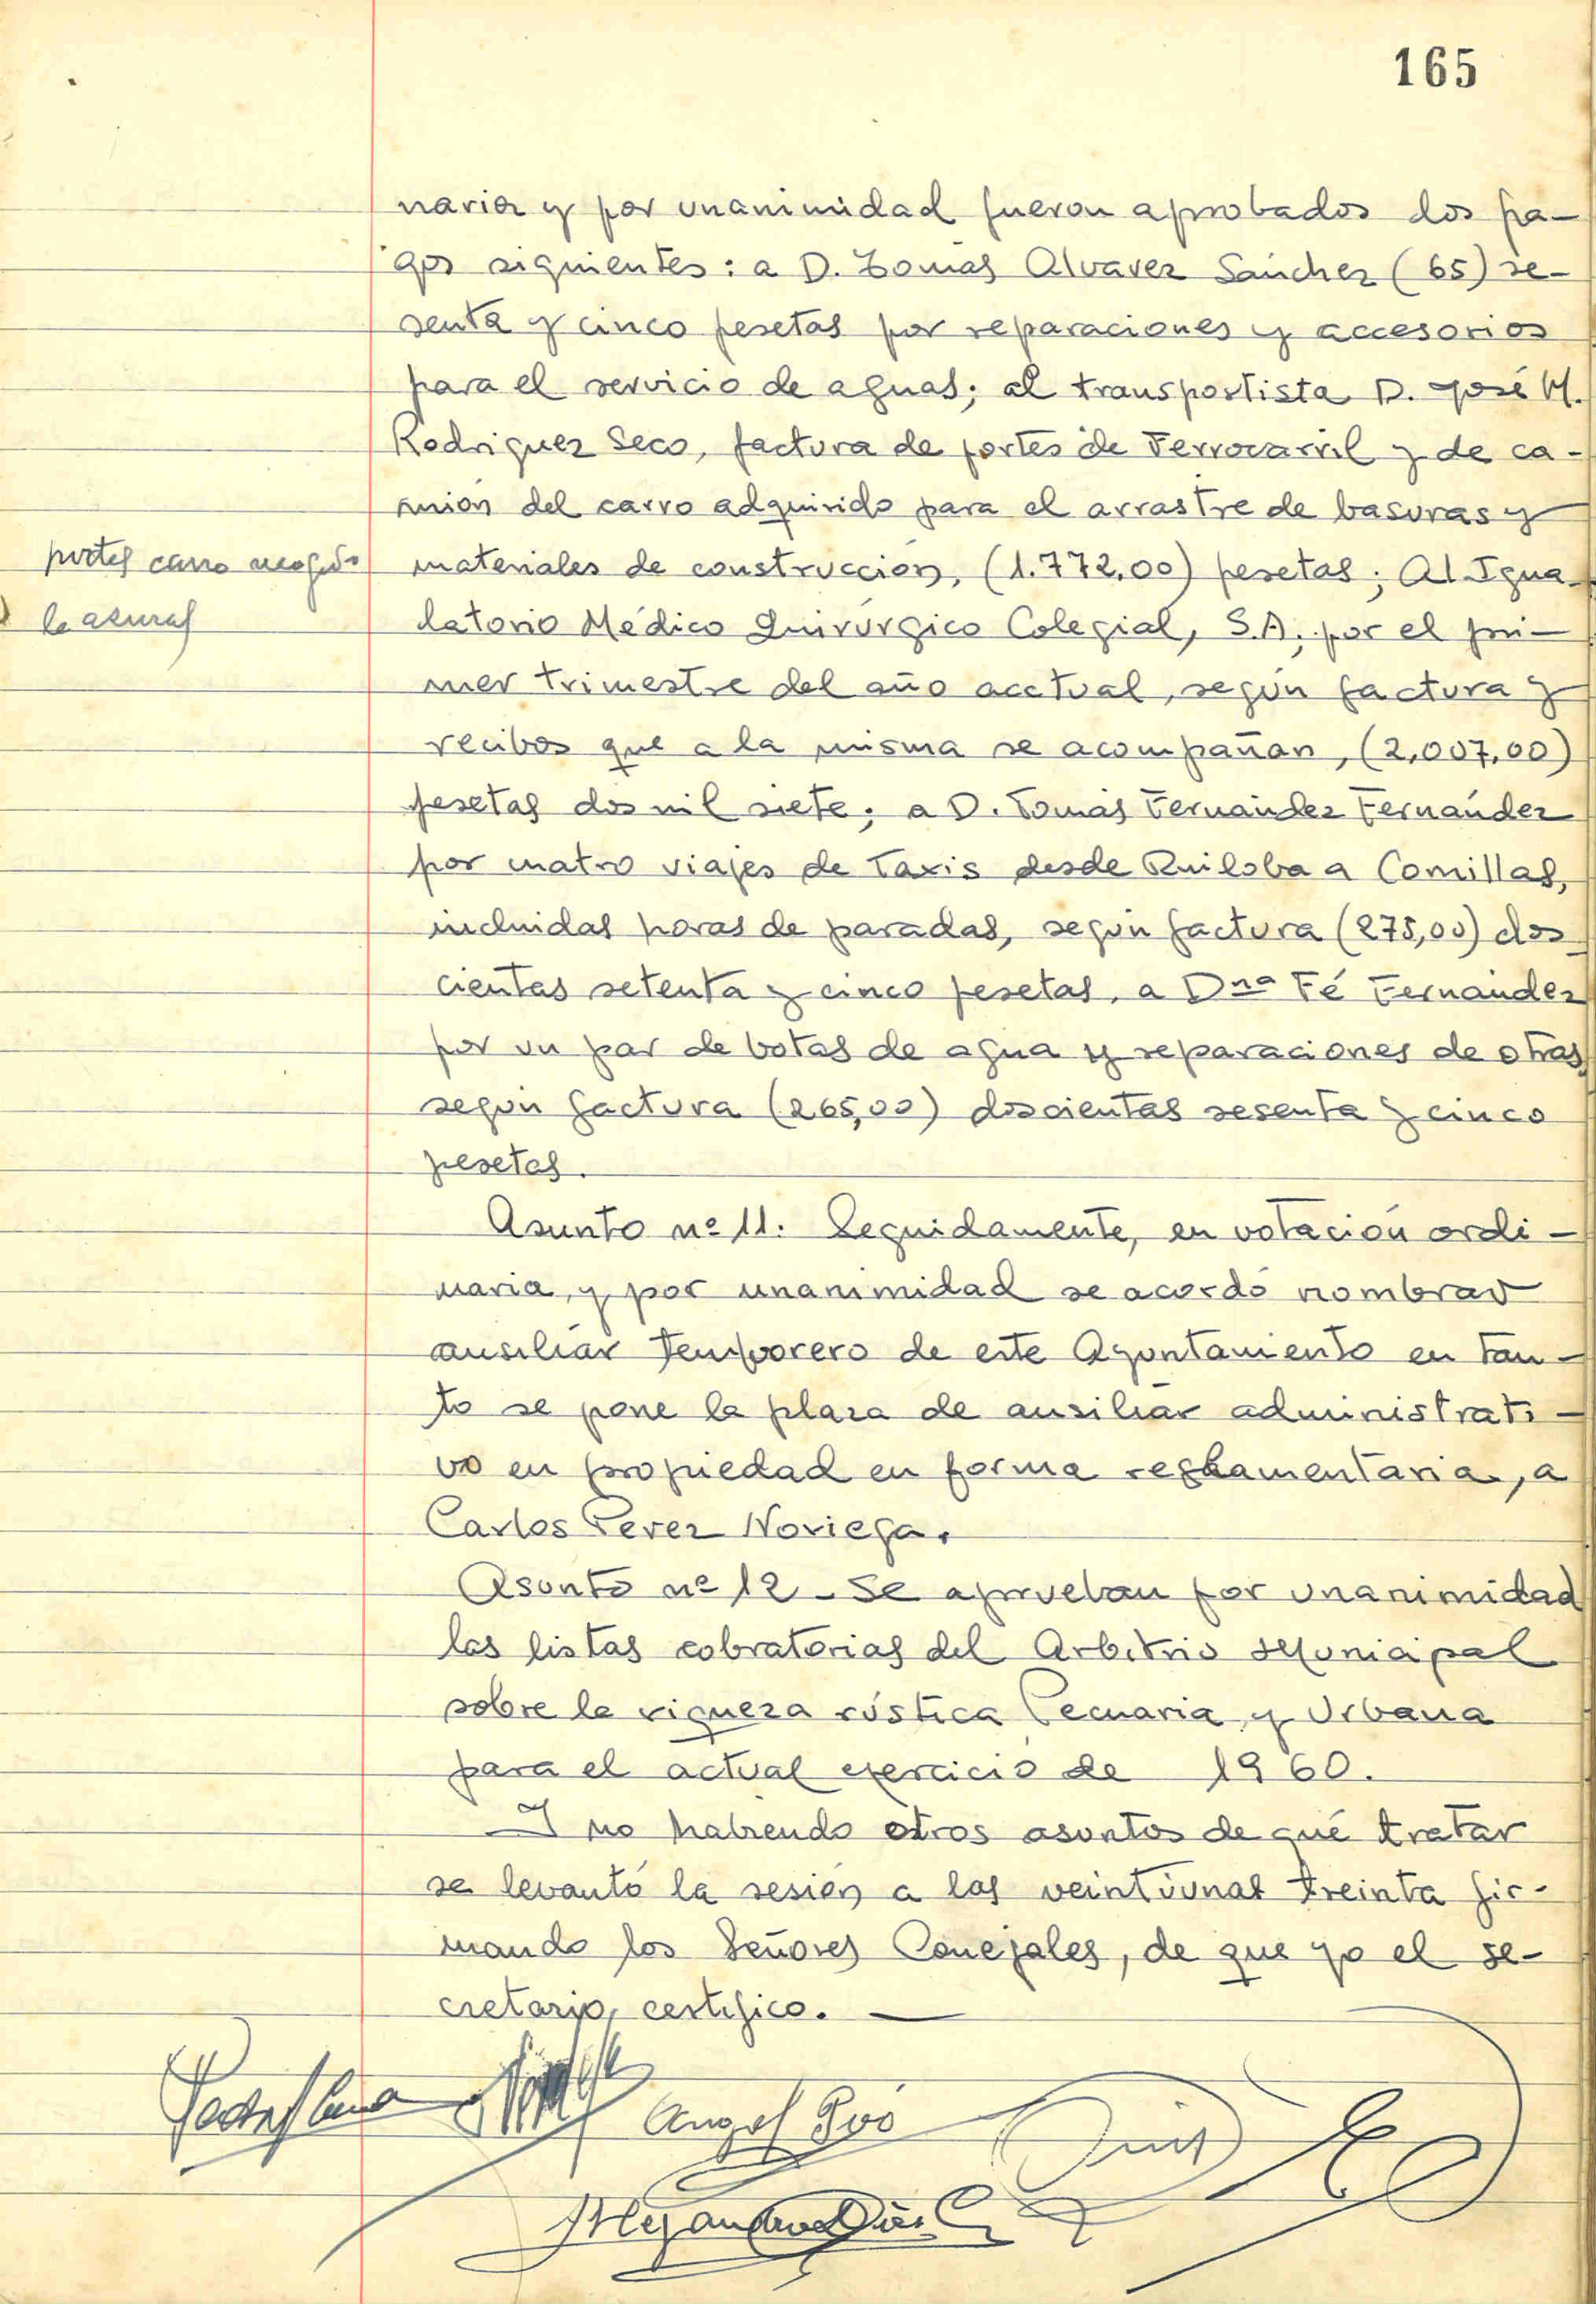 165
naria y por unanimidad fueron aprobados los pa-
gos siguientes: a D. Tomás Alvarez Sánchez (65) se-
senta y cinco pesetas por reparaciones y accesorios
para el servicio de aguas; al transportista D. José M.
Rodriguez Seco, factura de portes de Ferrocarril y de ca-
mión del carro adquirido para el arrastre de basuras y
portes carro recogida
basuras
materiales de construcción, (1.772,00) pesetas; Al Igua-
latorio Médico Quirúrgico Colegial, S.A. por el pri-
mer trimestre del año acctual, según factura y
recibos que a la misma se acompañan, (2,007,00)
pesetas dos mil siete; a D. Tomás Fernández Fernández
por cuatro viajes de Taxis desde Ruiloba a Comillas,
incluidas horas de paradas, según factura (275,00) dos
cientas setenta y cinco pesetas, a Dña Fé Fernández
por un par de botas de agua y reparaciones de otras
según factura (265,00) doscientas sesenta y cinco
pesetas.
Asunto nº 11: Seguidamente, en votación ordi-
naria, y por unanimidad se acordó nombrar
ausiliar Temporero de este Ayuntamiento en tan-
to se pone la plaza de ausiliar administrati-
vo en propiedad en forma reglamentaria, a
Carlos Perez Noriega.
Asunto nº 12 - Se aprueban por unanimidad
las listas cobratorias del Arbitrio Municipal
sobre la riqueza rústica Pecuaria y Urbana
para el actual ejercicio de 1960.
Y no habiendo otros asuntos de qué tratar
se levantó la sesión a las veintiunas treinta fir-
mando los Señores Conejales, de que yo el se-
cretario, certifico.
Angel
Luis
Alejandro